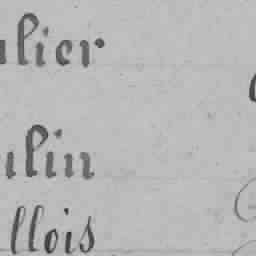 ulier
ulin
llois